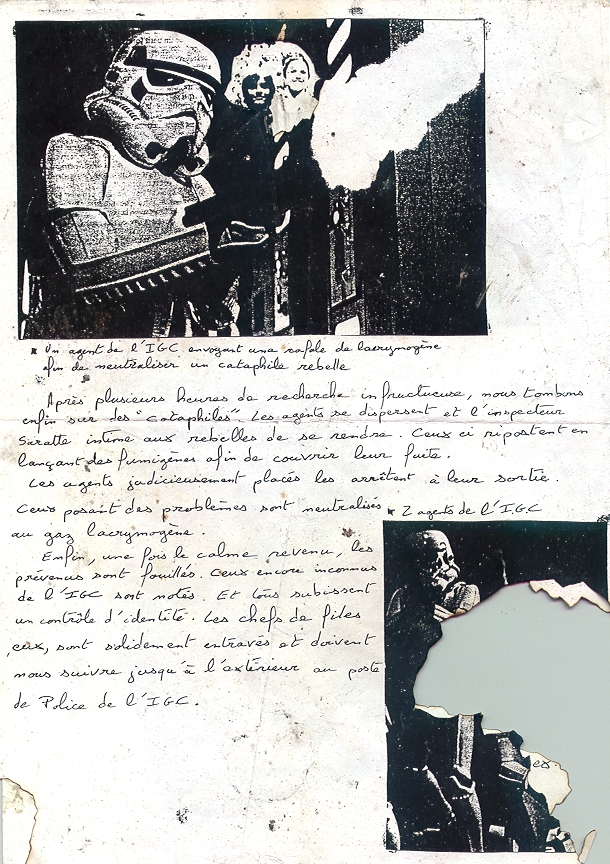 * Un agent de l'IGC envoyant una rafale de lacrymogène
afin de neutraliser un cataphile rebelle
Après plusieurs heures de recherche infructueuse, nous tombons
enfin sur des "cataphiles". Les agents se dispersent et l'inspecteur
Suratte intime aux rebelles de se rendre. Ceux ci ripostent en
lançant des fumigènes afin de couvrir leur fuite.
Les agents judicieusement placés les arrêtent à leur sortie.
Ceux posant des problèmes sont neutralisés
au gaz lacrymogène.
* 2 agents de l'I.G.C
Enfin, une fois le calme revenu, les
prévenus sont fouillés. Ceux encore inconnus
de l'IGC sont notés. Et tous subissent
un contrôle d'identité. Les chefs de files
,eux, sont solidement entravés et doivent
nous suivre jusqu'à l'extérieur au poste
de Police de l'IGC.